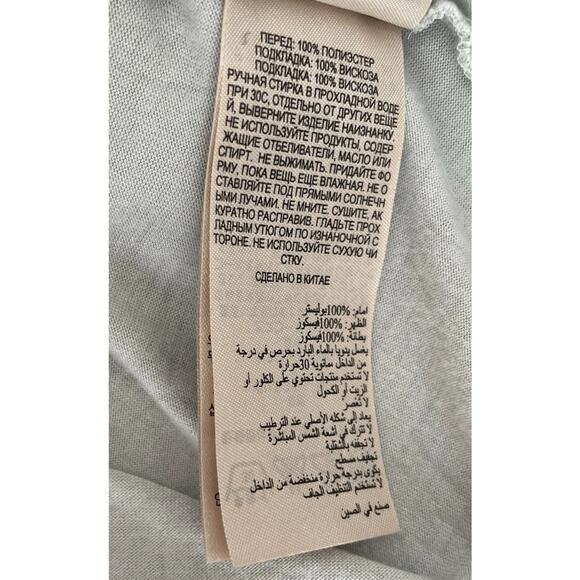 ПЕРЕД: 100% ПОЛИЭСТЕР
ПОДКЛАДКА: 100% ВИСКОЗА
ПОДКЛАДКА: 100% ВИСКОЗА
РУЧНАЯ СТИРКА В ПРОХЛАДНОЙ ВОДЕ
ПРИ 30С, ОТДЕЛЬНО ОТ ДРУГИХ ВЕЩЕ
Й, ВЫВЕРНИТЕ ИЗДЕЛИЕ НАИЗНАНКУ.
НЕ ИСПОЛЬЗУЙТЕ ПРОДУКТЫ, СОДЕР
ЖАЩИЕ ОТБЕЛИВАТЕЛИ, МАСЛО ИЛИ
СПИРТ. НЕ ВЫЖИМАТЬ. ПРИДАЙТЕ ФО
РМУ, ПОКА ВЕЩЬ ЕЩЕ ВЛАЖНАЯ. НЕ О
СТАВЛЯЙТЕ ПОД ПРЯМЫМИ СОЛНЕЧН
ЫМИ ЛУЧАМИ. НЕ МНИТЕ. СУШИТЕ, АК
КУРАТНО РАСПРАВИВ. ГЛАДЬТЕ ПРОХ
ЛАДНЫМ УТЮГОМ ПО ИЗНАНОЧНОЙ С
ТОРОНЕ. НЕ ИСПОЛЬЗУЙТЕ СУХУЮ ЧИ
СТКУ.
СДЕЛАНО В КИТАЕ
امام: %100بوليستر
الظهر: %100فيسكوز
بطانة: %100فيسكوز
يغسل يدويا بالماء البارد بحرص في درجة
من الداخل ،مانوية 30حرارة
لا تستخدم منتجات تحتوي على الكلور أو
الزيت أو الكحول
لا تعصر
يعاد إلى شكله الأصلي عند الترطيب
لا تترك في أشعة الشمس المباشرة
لا تجففه بالشقلبة
تجفيف مسطح
يكوى بدرجة حرارة منخفضة من الداخل
لا تستخدم التنظيف الجاف
صنع في الصين